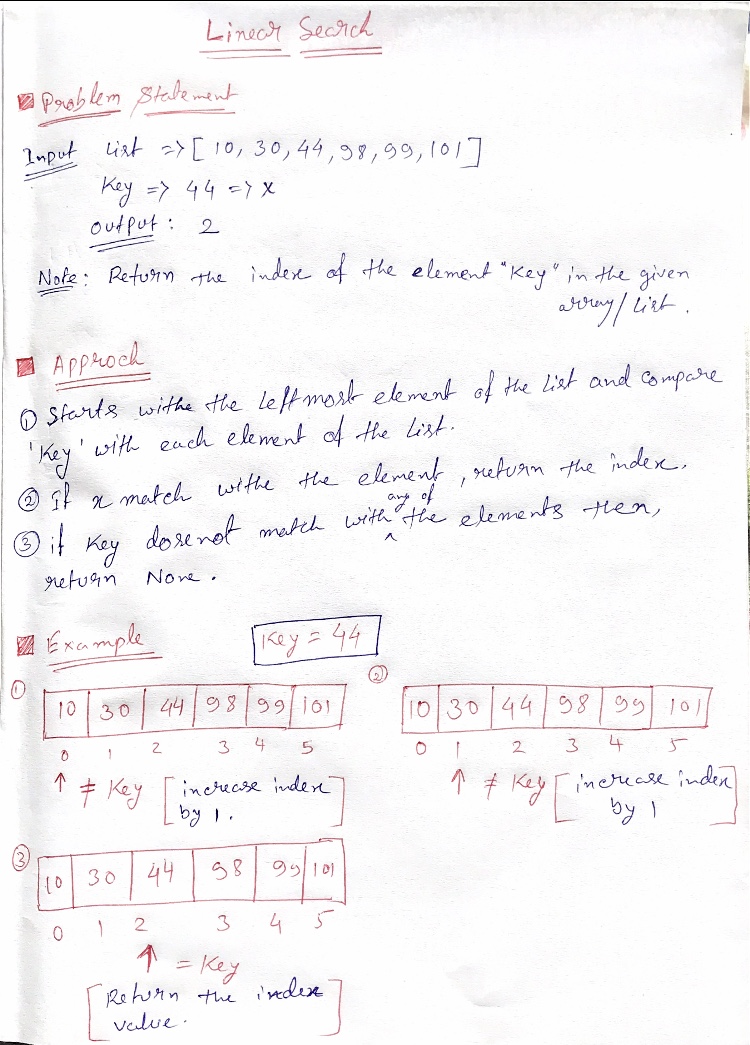 Linear Search
Problem Statement
Input List => [10, 30, 44, 98, 99, 101]
Key => 44 => x
output : 2
Note: Return the index of the element "Key" in the given
array/List.
Approch
① Starts withe the leftmost element of the List and compare
'Key' with each element of the List.
② If x match withe the element, return the index.
③ if Key dosenot match with any of the elements then,
return None.
Example Key = 44
①
10 30 44 98 99 101
0 1 2 3 4 5
↑ ≠ Key [increase index
by 1.]
②
10 30 44 98 99 101
0 1 2 3 4 5
↑ ≠ Key [increase index
by 1]
③
10 30 44 98 99 101
0 1 2 3 4 5
↑ = Key
[Return the index
value.]